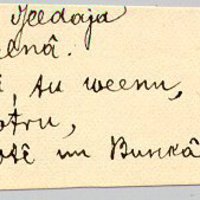 Jeedaja
elnâ.
, tu weenu,
otru,
otê un Buskâ